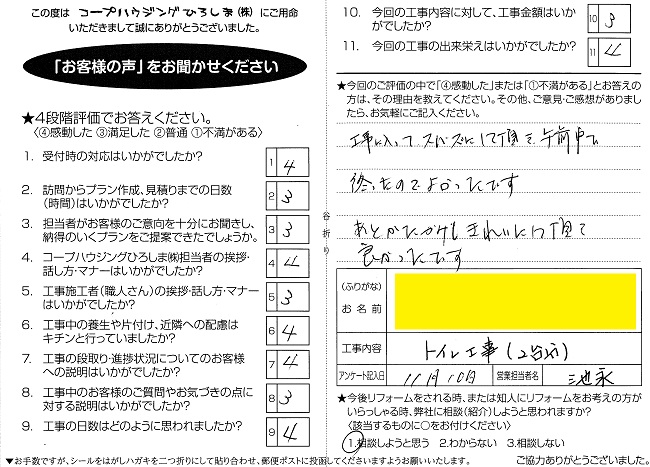 この度は コープハウジングひろしま(株) にご用命
いただきまして誠にありがとうございました。
「お客様の声」をお聞かせください
★4段階評価でお答えください。
〈④感動した ③満足した ②普通 ①不満がある〉
1. 受付時の対応はいかがでしたか? 1 4
2. 訪問からプラン作成、見積りまでの日数
(時間)はいかがでしたか? 2 3
3. 担当者がお客様のご意向を十分にお聞きし、
納得のいくプランをご提案できたでしょうか。 3 3
4. コープハウジングひろしま㈱担当者の挨拶・
話し方・マナーはいかがでしたか? 4 4
5. 工事施工者(職人さん)の挨拶・話し方・マナー
はいかがでしたか? 5 3
6. 工事中の養生や片付け、近隣への配慮は
キチンと行っていましたか? 6 4
7. 工事の段取り・進捗状況についてのお客様
への説明はいかがでしたか? 7 4
8. 工事中のお客様のご質問やお気づきの点に
対する説明はいかがでしたか? 8 3
9. 工事の日数はどのように思われましたか? 9 4
▼お手数ですが、シールをはがしハガキを二つ折りにして貼り合わせ、郵便ポストに投函してくださいますようお願いいたします。
谷折り
10. 今回の工事内容に対して、工事金額はいか
がでしたか? 10 3
11. 今回の工事の出来栄えはいかがでしたか? 11 4
★今回のご評価の中で「④感動した」または「①不満がある」とお答えの
方は、その理由を教えてください。その他、ご意見・ご感想がありまし
たら、お気軽にご記入ください。
工事に入って スムーズに して頂き 午前中で
終ったのでよかったです
あとかたづけも きれいにして頂いて
良かったです
(ふりがな)
お名前
工事内容 トイレ工事(2台分)
アンケート記入日 11月10日 営業担当者名 池永
★今後リフォームをされる時、または知人にリフォームをお考えの方が
いらっしゃる時、弊社に相談(紹介)しようと思われますか?
〈該当するものに○をお付けください〉
1.相談しようと思う 2.わからない 3.相談しない
ご協力ありがとうございました。